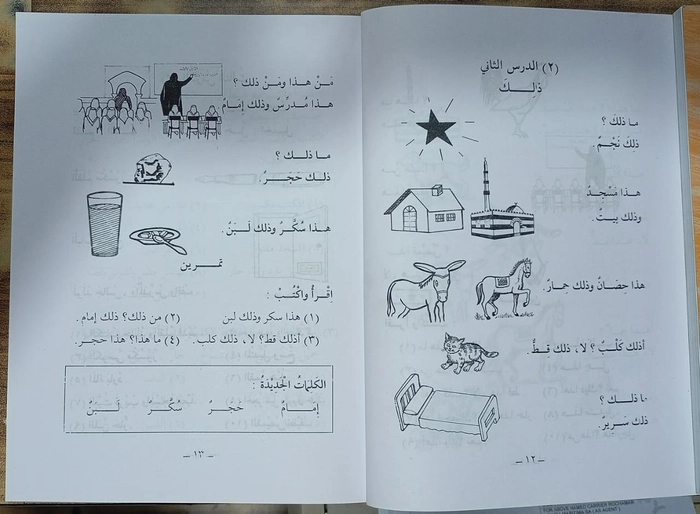 (٢) الدرس الثاني
ذلِـــكَ
ما ذلكَ ؟
ذلِكَ نَجْمٌ.
هـذا مَسْجِدٌ
وذلك بيـتٌ.
هذا حِصَانٌ وذلك حِمارٌ.
أذلك كَلْبٌ ؟ لا، ذلك قـطٌّ.
ما ذلـــك ؟
ذلك سَـرِيرٌ.
– ١٢ –
مَـنْ هــذا ومَـنْ ذلك ؟
هـذا مُـدَرِّسٌ وذلك إمَـامٌ
ما ذلـــك ؟
ذلـك حَجَـرٌ.
هـذا سُكَّـرٌ وذلك لَـبَنٌ.
تمـــرين
اِقْـرأْ واكْتُـبْ :
(١) هذا سكر وذلك لبن (٢) من ذلك؟ ذلك إمام.
(٣) أذلك قط؟ لا، ذلك كلب. (٤) ما هذا؟ هذا حجـر.
الكلِمَاتُ الجَدِيْدَةُ :
إمَـامٌ حَجـرٌ سُكَّـرٌ لَـبَنٌ
– ١٣ –